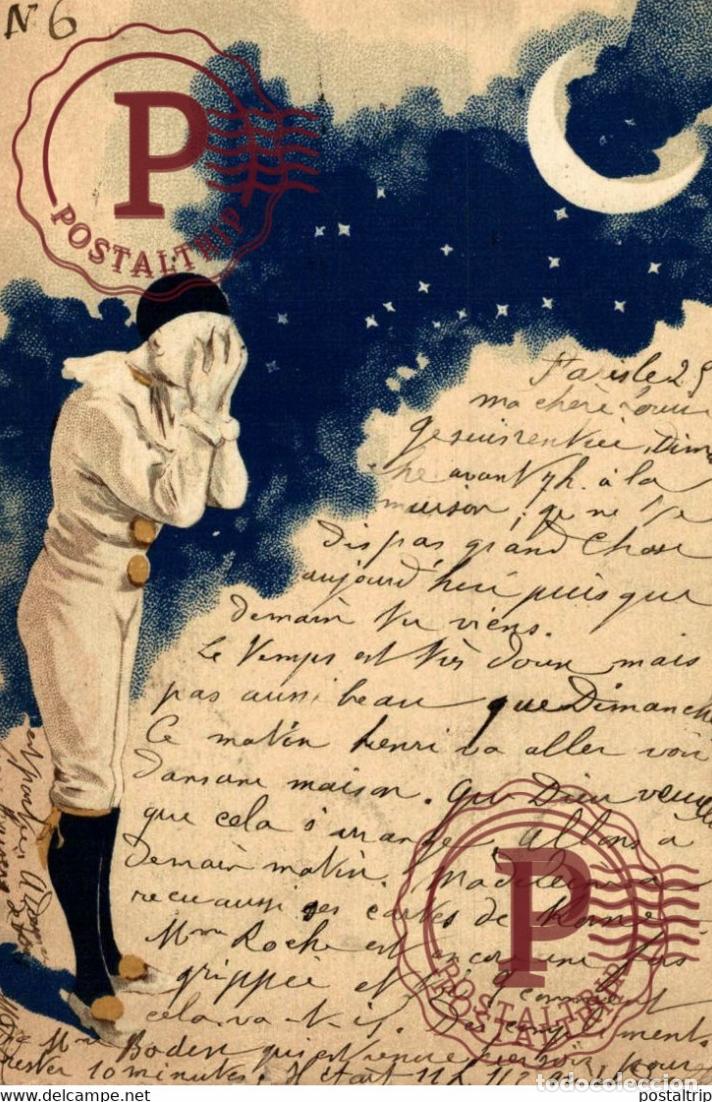 N 6
P
POSTALTRIP
Paris le 25
ma chère
Je suis rentrée Dim
che avant 7 h. à la
maison, je ne te
dis pas grand chose
aujourd'hui puis que
demain tu viens.
Le temps est très doux mais
pas aussi beau que Dimanche
Ce matin henri va aller voir
dans une maison. que Dieu veuille
que cela s'arrange, allons à
demain matin. Madeleine a
recu aussi ses cartes de
Mme Roche est encore une fois
grippée et
comment
cela va-t-il. Des compliments
Mme Boden qui est venue hier soir, pour
rester 10 minutes. Il était 11 h. 1/2
P
POSTALTRIP
todocoleccion
delcampe.net
postaltrip